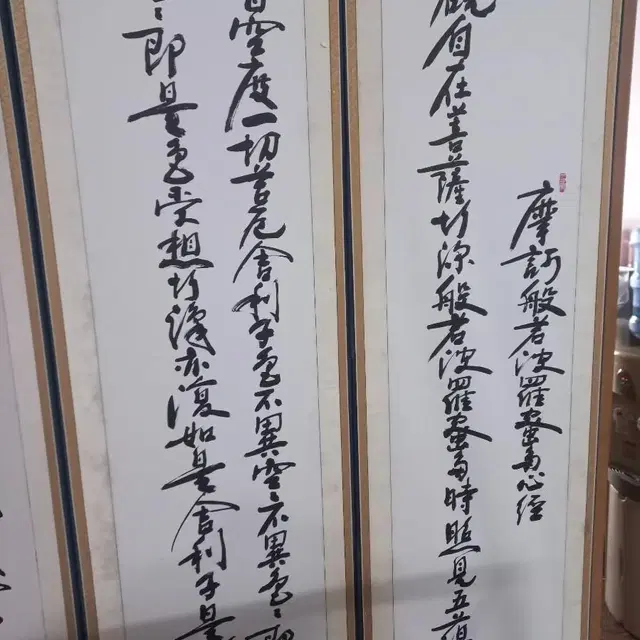 摩訶般若波羅蜜多心經
觀自在菩薩行深般若波羅蜜多時照見五蘊
皆空度一切苦厄舍利子色不異空〻不異色〻即
〻即是色受想行識亦復如是舍利子是